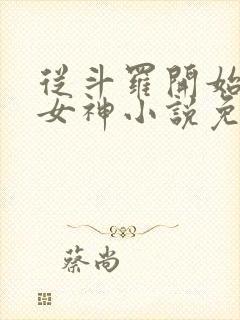 從斗羅開始
女神小說免
蔡尚